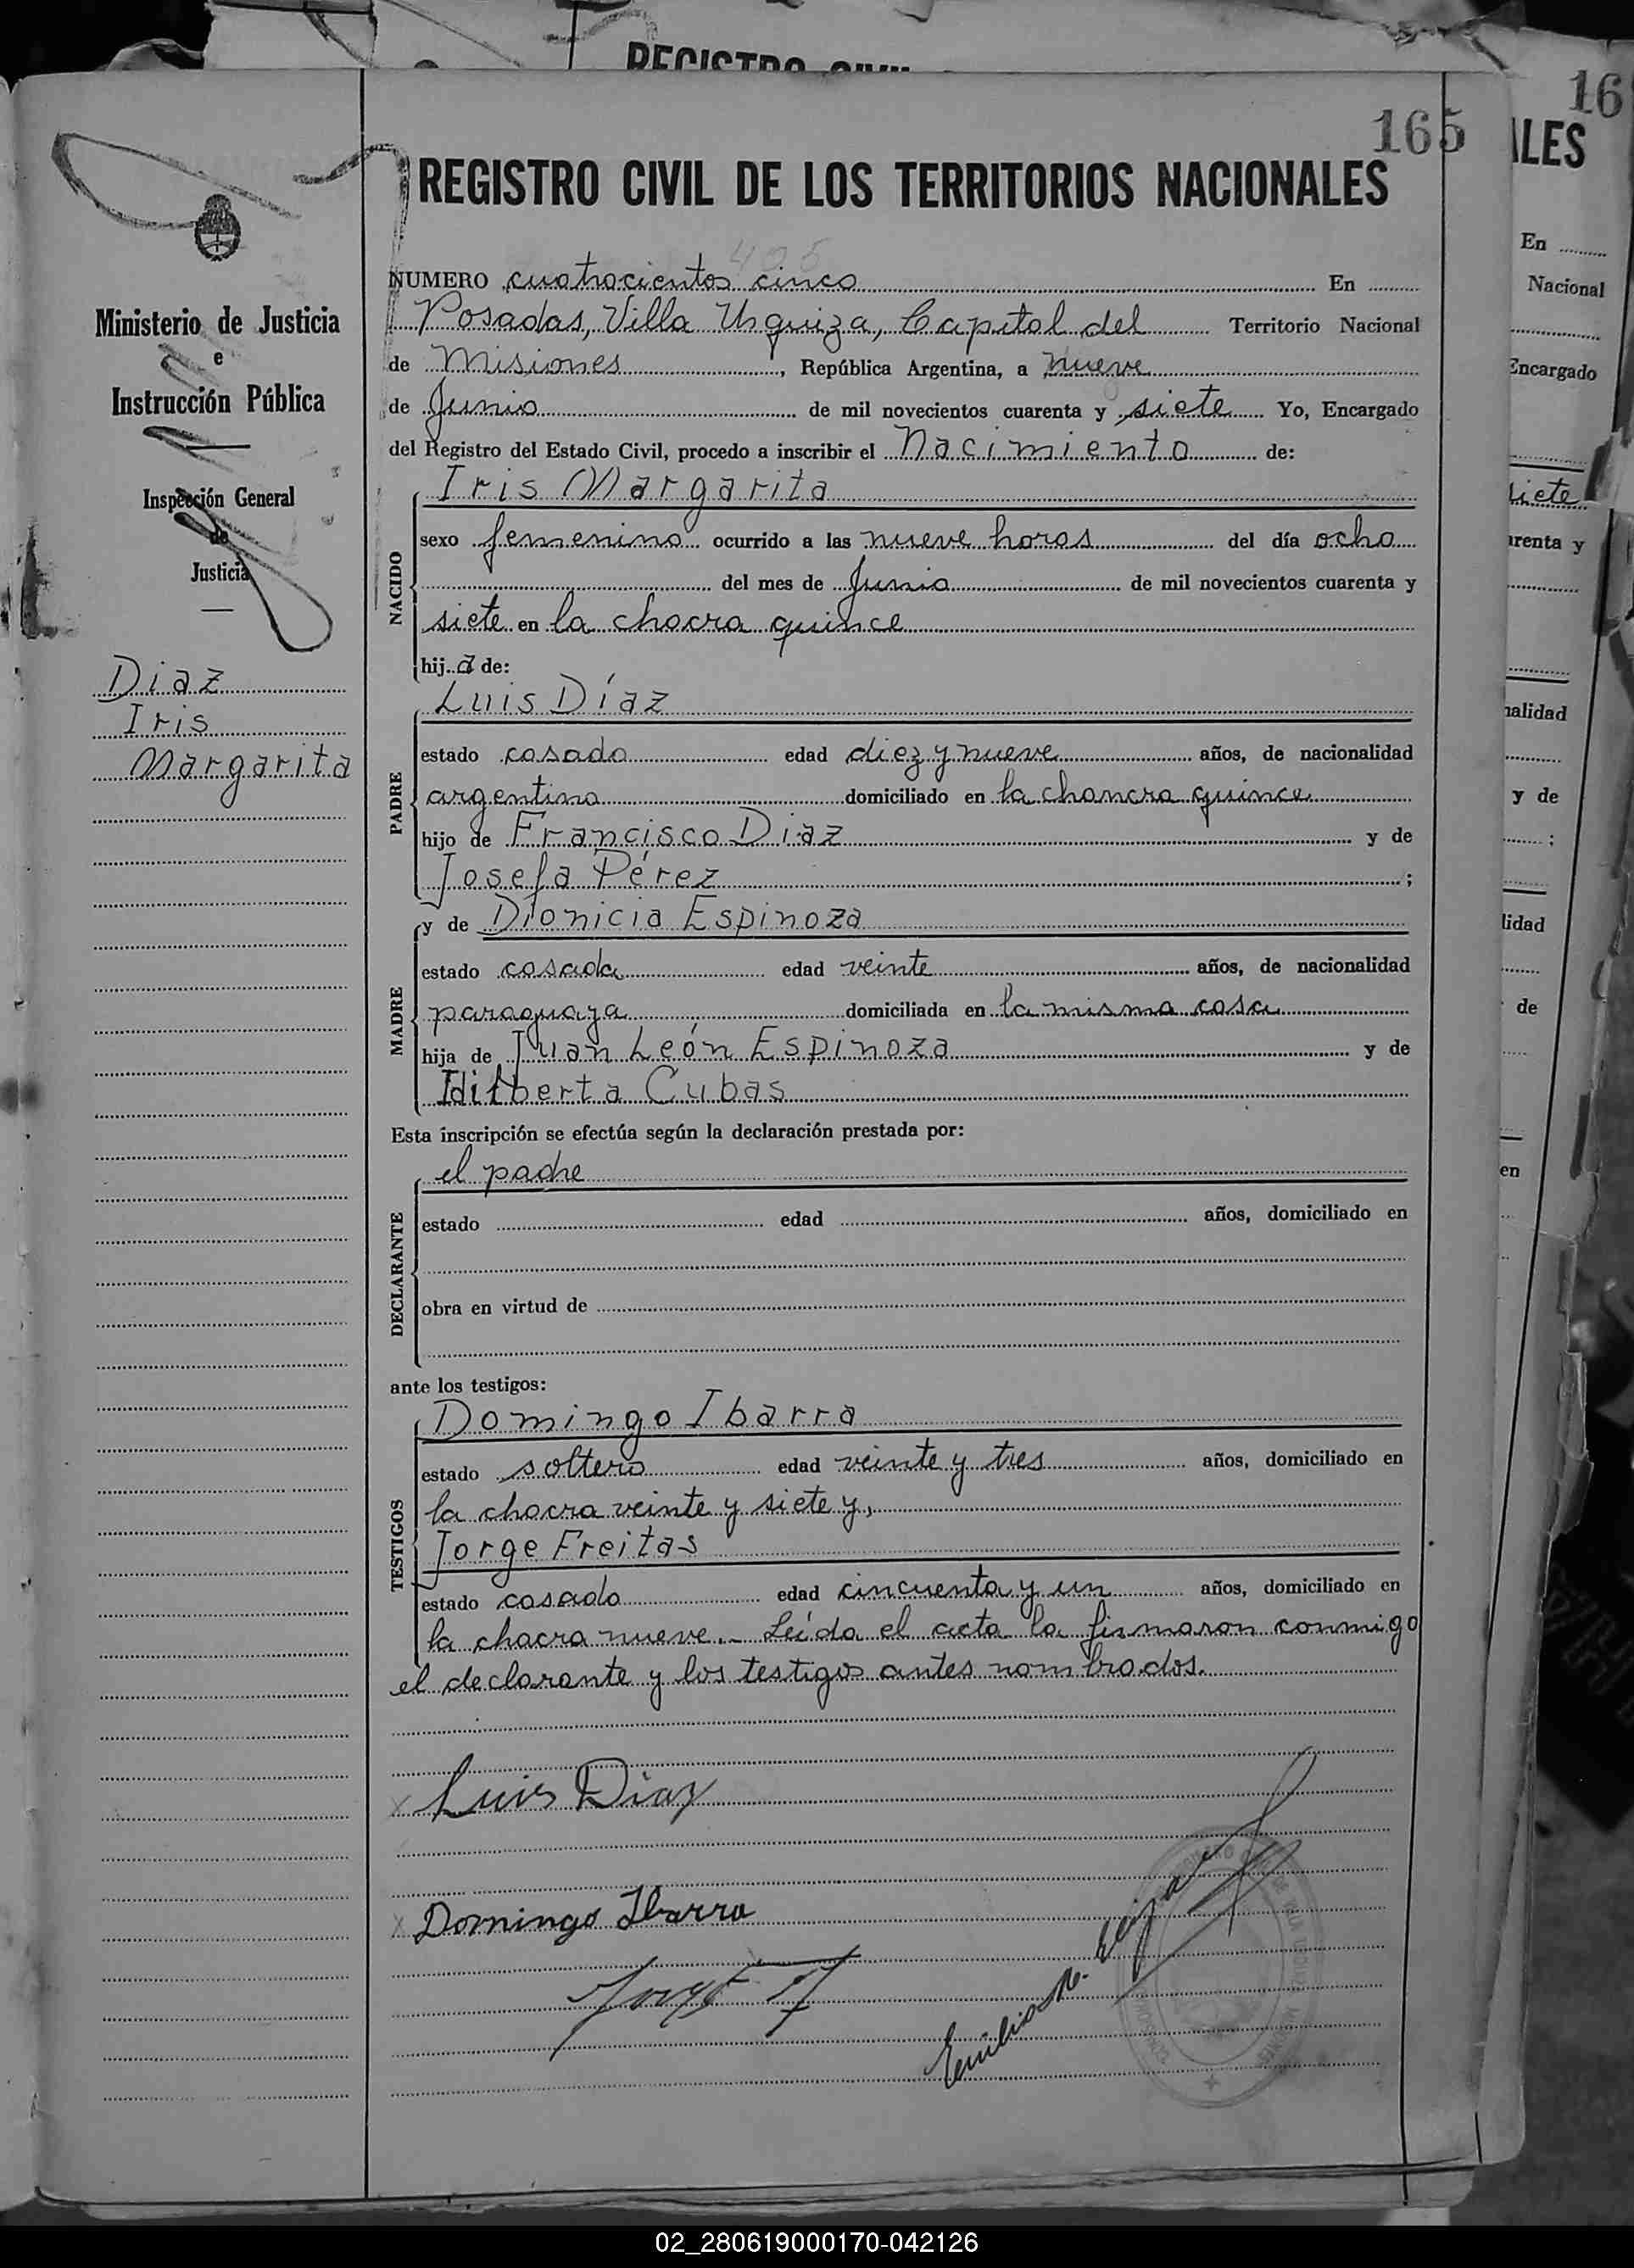 REGISTRO CIVIL
165
16
REGISTRO CIVIL DE LOS TERRITORIOS NACIONALES
405
NUMERO cuatrocientos cinco En
Posadas, Villa Urquiza, Capital del Territorio Nacional
de Misiones, República Argentina, a nueve
de Junio de mil novecientos cuarenta y siete Yo, Encargado
del Registro del Estado Civil, procedo a inscribir el Nacimiento de:
NACIDO
Iris Margarita
sexo femenino ocurrido a las nueve horas del día ocho
del mes de Junio de mil novecientos cuarenta y
siete en la chacra quince
hija de:
PADRE
Luis Díaz
estado casado edad diez y nueve años, de nacionalidad
argentino domiciliado en la chancra quince
hijo de Francisco Diaz y de
Josefa Pérez;
MADRE
y de Dionicia Espinoza
estado casada edad veinte años, de nacionalidad
paraguaya domiciliada en la misma casa
hija de Juan León Espinoza y de
Idilberta Cubas
Esta inscripción se efectúa según la declaración prestada por:
DECLARANTE
el padre
estado edad años, domiciliado en
obra en virtud de
ante los testigos:
TESTIGOS
Domingo Ibarra
estado soltero edad veinte y tres años, domiciliado en
la chacra veinte y siete y,
Jorge Freitas
estado casado edad cincuenta y un años, domiciliado en
la chacra nueve.- Leída el acta la firmaron conmigo
el declarante y los testigos antes nombrados.
Luis Diaz
Domingo Ibarra
Jorge
Emilio
Ministerio de Justicia
e
Instrucción Pública
Inspección General
de
Justicia
Diaz
Iris
Margarita
ALES
En
Nacional
Encargado
siete
arenta y
nalidad
y de
;
lidad
de
en
02_280619000170-042126